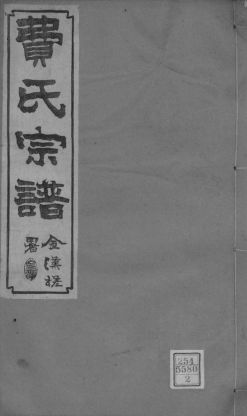 費氏宗譜
金漢槎
署
254
5580
2